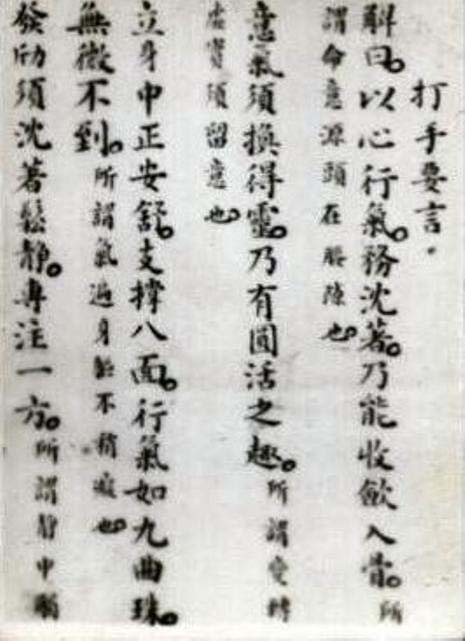 打手要言。
解曰。以心行氣。務沈著。乃能收斂入骨。所
謂命意源頭在腰隙也。
意氣須換得靈。乃有圓活之趣。所謂變轉
虛實須留意也。
立身中正安舒。支撐八面。行氣如九曲珠。
無微不到。所謂氣遍身軀不稍癡也。
發劤須沈著鬆靜。專注一方。所謂靜中觸